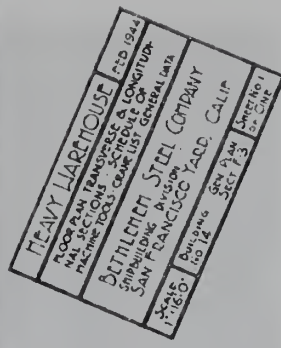 HEAVY WAREHOUSE
FEB 1944
FLOOR PLAN TRANSVERSE & LONGITUDI-
NAL SECTIONS - SCHEDULE OF
MACHINE TOOLS - CRANE LIST GENERAL DATA
BETHLEHEM STEEL COMPANY
SHIPBUILDING DIVISION
SAN FRANCISCO YARD, CALIF
SCALE
1"=16'-0"
BUILDING
NO 14
GEN PLAN
SECT F-3
SHEET NO 1
OF ONE